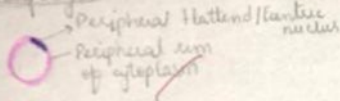 Peripheral flattend/Eccentric
nucleus
Peripheral rim
of cytoplasm